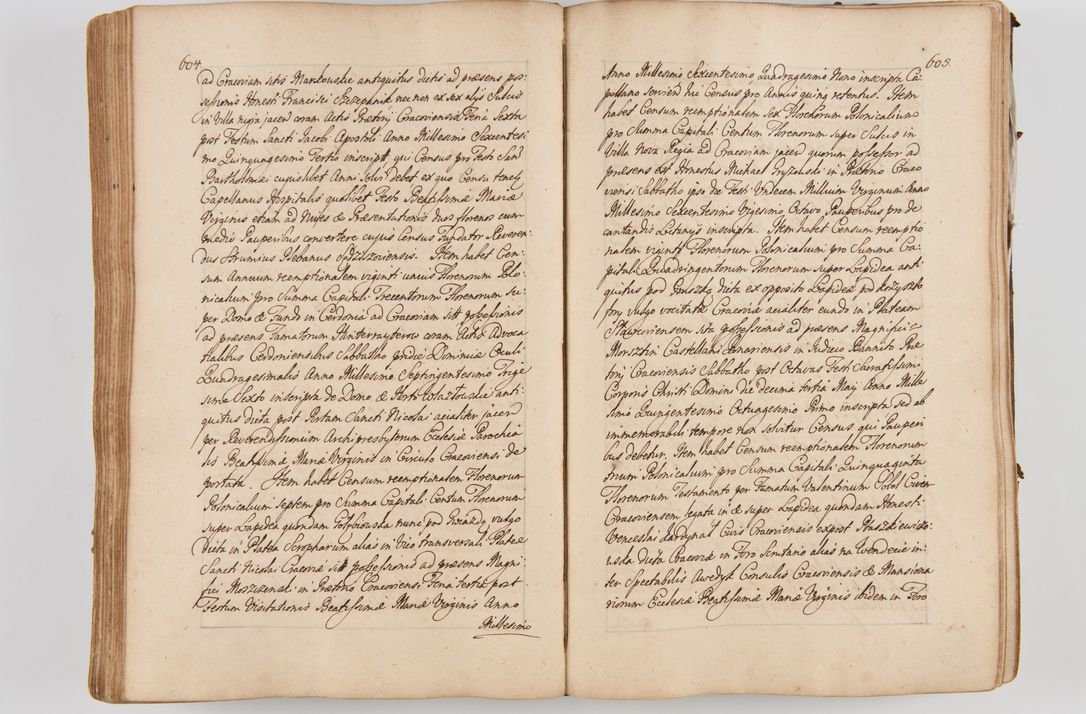 604.
ad Cracoviam sitis Mantkowskie antiquitus dictis ad præsens pos=
sessionis Honesti Francisci Szczepanik nec non ex sex alijs Sulcis
in Villa nigra jacen coram Actis Prætorij Cracoviensis Feria Sexta
post Festum Sancti Jacobi Apostoli Anno Millesimo Sexcentesi
mo Quinquagesimo Tertio inscript. qui Census pro Festo San
Bartholomæi cujuslibet Anni solvi debet ex quo Censu tenetʳ
Capellanus Hospitalis quolibet Festo Beatissimæ Mariæ
Virginis etiam ad Nives & Præsentationis duos florenos cum
medio Pauperibus convertere cujus Census Fundator Reveren=
dus Strumius Plebanus. Item habet Cen=
sum Annuum reemptionalem viginti unius Florenorum Polo
nicalium pro Summa Capitali Trecentorum Florenorum Su=
per Domo & Fundo in Cerdonia ad Cracoviam sitt possessionis
ad præsens Famatorum Hinterrayterow coram Actis Advoca
tialibus Cerdoniensibus Sabbatho pridie Dominicæ Oculi
Quadragesimalis Anno Millesimo Septingentesimo Trige
simo Sexto inscripta de Domo & Horti anti=
quitus dicta post Portam Sancti Nicolai acialiter jacen
per Reverendissimum Archipresbyterum Ecclesiæ Parochia
lis Beatissimæ Mariæ Virginis in Circulo Cracoviensi de
portata. Item habet Censum reemptionalem Florenorum
Polonicalium septem pro Summa Capitali Centum Florenorum
super Lapidea quondam nunc pod Gwiazdą vulgo
dicta in Platea Scropharum alias in Vico transversali Plateæ
Sancti Nicolai Cracoviæ sitt possessionis ad præsens Magni
fici in Prætorio Cracoviensi Feria tertia post
Festum Visitationis Beatissimæ Mariæ Virginis Anno
Millesimo
605.
Anno Millesimo Sexcentesimo Quadragesimo Nono inscripta Ca=
pellano servien hic Census pro Annis quinq retentus. Item
habet Censum reemptionalem sex Florenorum Polonicalium
pro Summa Capitali Centum Florenorum super Sulcis in
Villa Nova Regia ad Cracoviam jacen quorum possessor ad
præsens est Honestus Michael Gryzelski in Prætorio Craco
viensi Sabbatho ipso die Festi Undecem Millium Virginum Anno
Millesimo Sexcentesimo Vigesimo Octavo Pauperibus pro de
cantandis Letanijs inscripta. Item habet Censum reemptio
nalem viginti Florenorum Polonicalium pro Summa Ca=
pitali Quadringentorum Florenorum super Lapidea anti
quitus pod Gruszką dicta ex opposito Lapideæ pod Krzyszto
fory vulgo vocitatæ Cracoviæ acialiter eundo in Plateam
Stawcoviensem sita possessionis ad præsens Magnifici
Morsztin Castellani in Judicio Bannito Præ
torij Cracoviensis Sabbatho post Octavas Festi Sacratissimi
Corporis Christi Domini die decima tertia Maij Anno Mille
simo Quingentesimo Octuagesimo Primo inscripta sed ab
immemorabili tempore non solvitur Census qui Pauperi
bus debetur. Item habet Censum reemptionalem Florenorum
trium Polonicalium pro Summa Capitali Quinquaginta
Florenorum Testamento per Famatum Valentinum Civem
Cracoviensem legata in & super Lapidea quondam Honesti
Venceslai Kardynał Civis Cracoviensis expost Ptaszkewiczo=
wska dicta Cracoviæ in Foro Scrutario alias na Wendecie in=
ter Spectabilis Awedyk Consulis Cracoviensis & Mansiona
riorum Ecclesiæ Beatissimæ Mariæ Virginis ibidem in Foro